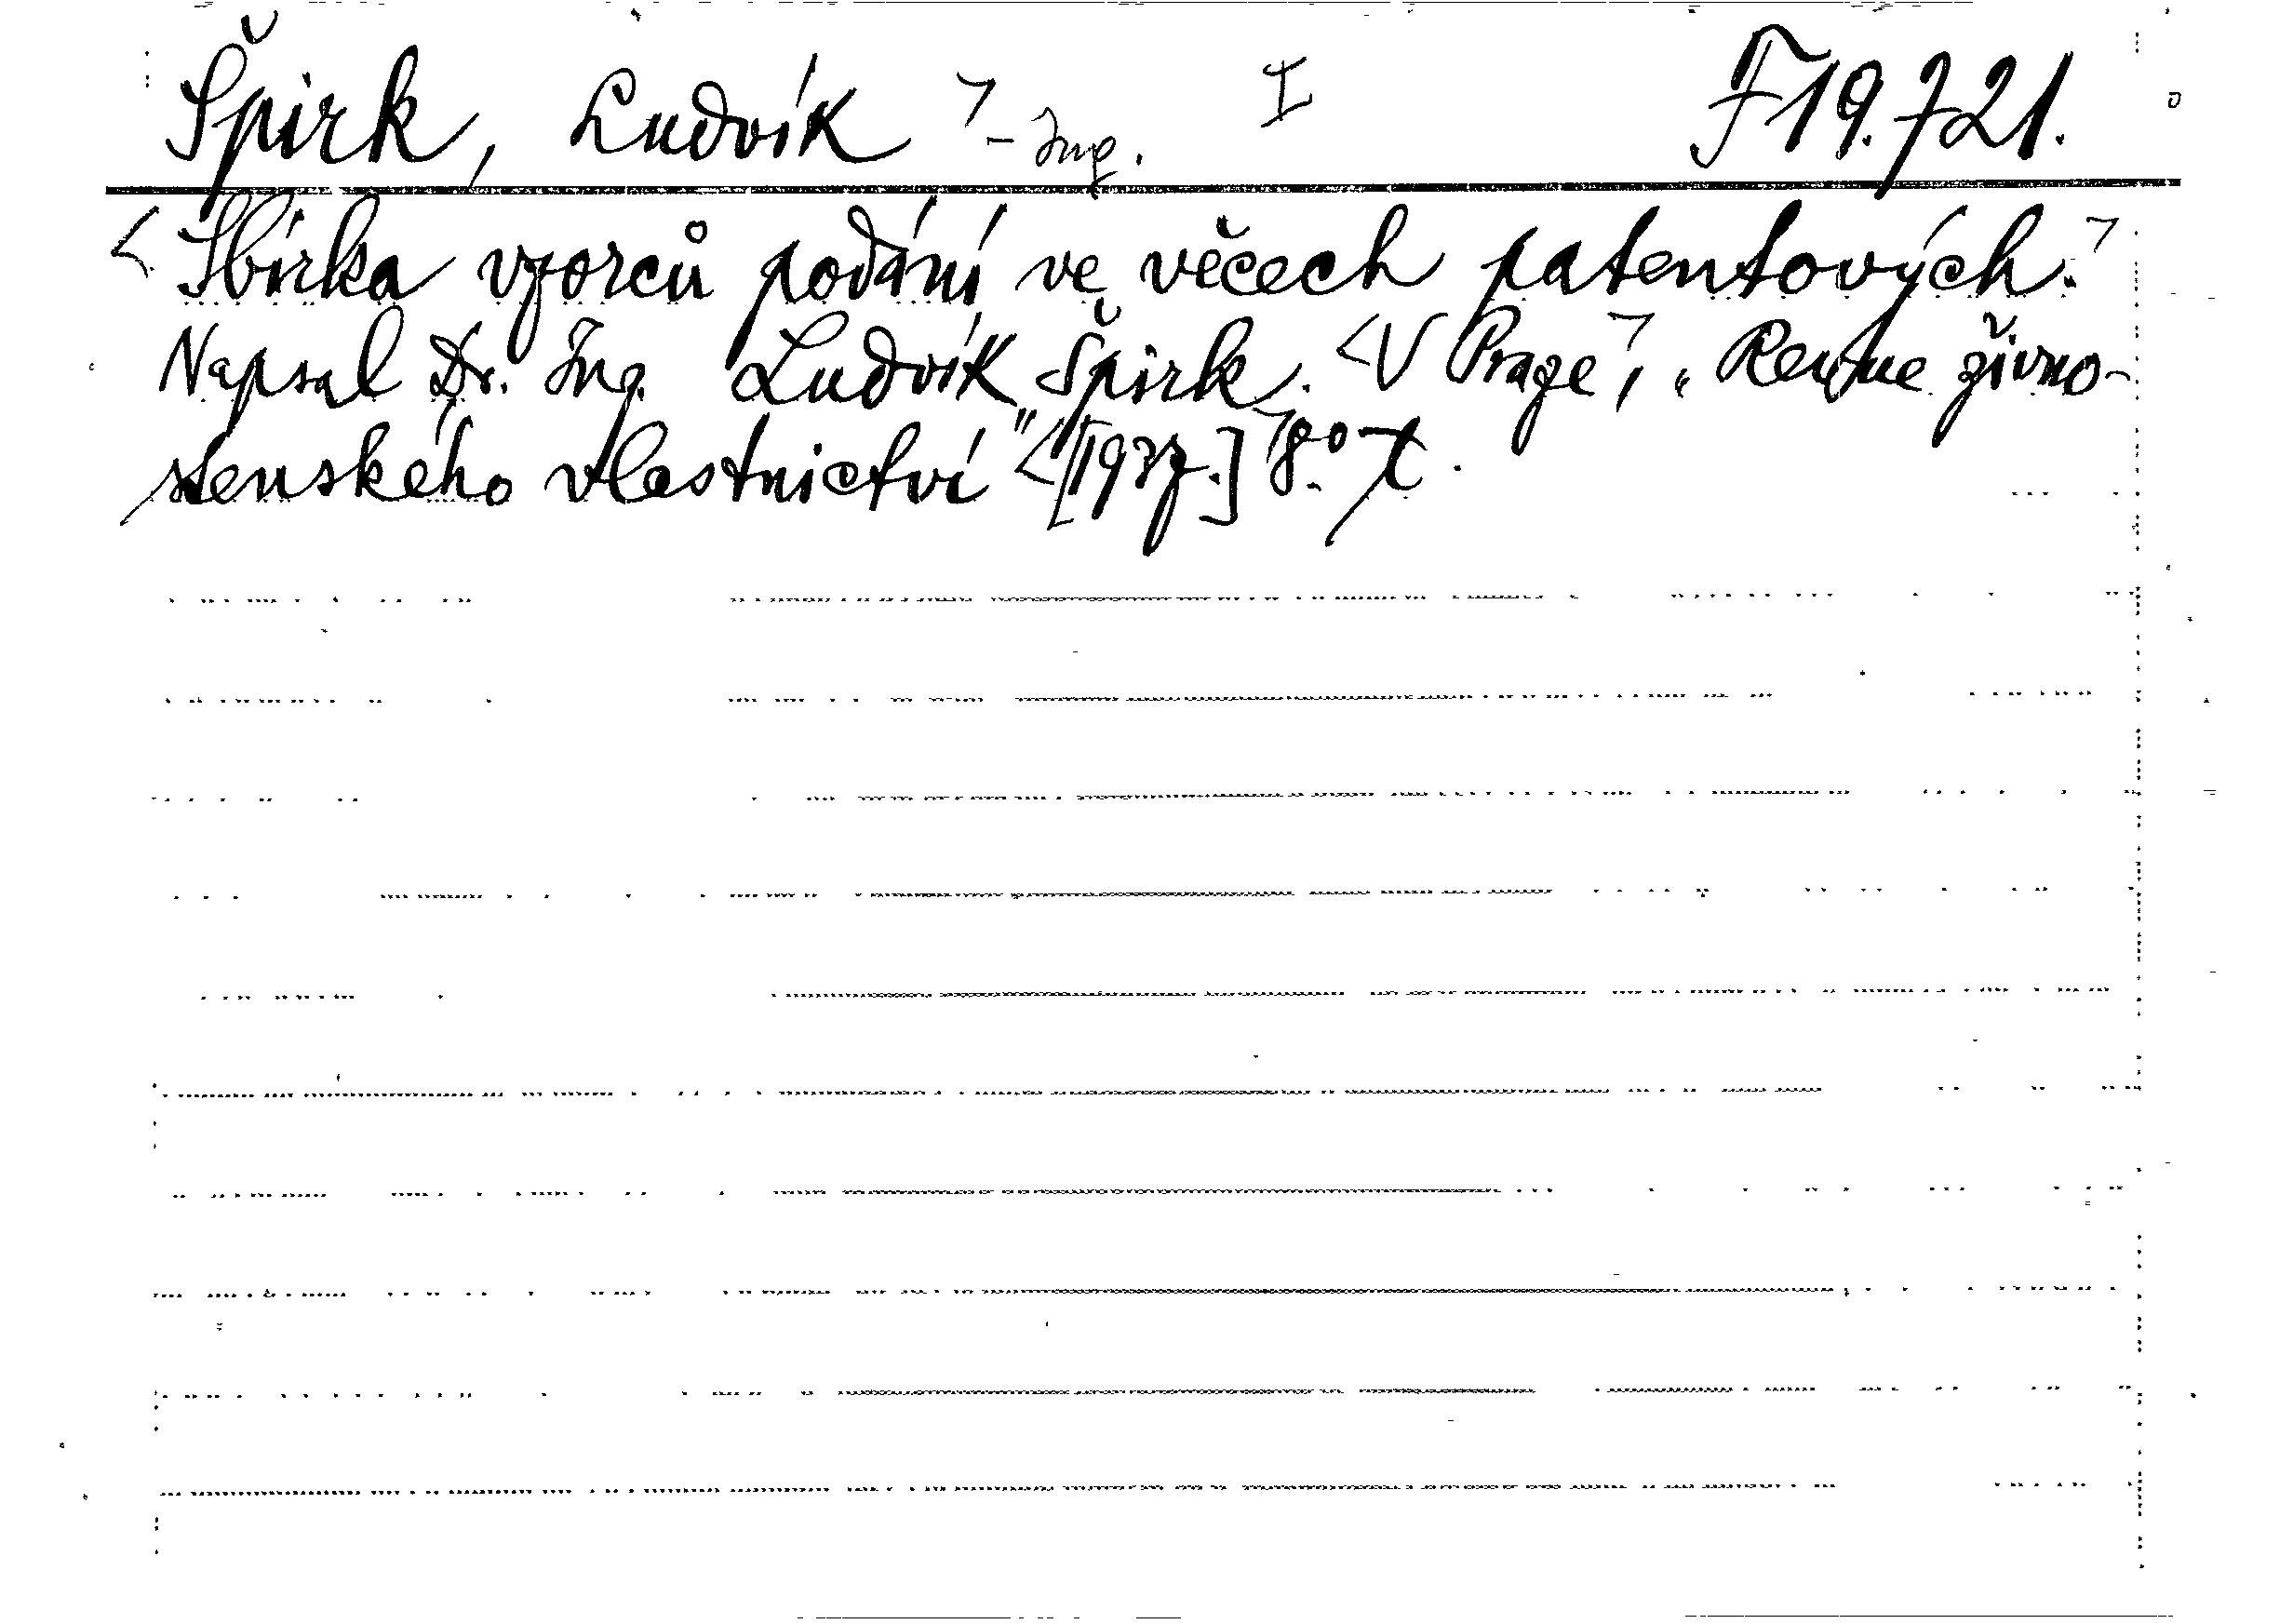 Špirk, Ludvík ¬ - Ing. I F 19.721.
< Sbírka vzorců podání ve věcech patentových. ¬
Napsal Dr. Ing. Ludvík Špirk. < V Praze ¬, „Revue živno-
stenského vlastnictví" < [1937.] ¬ 8°.